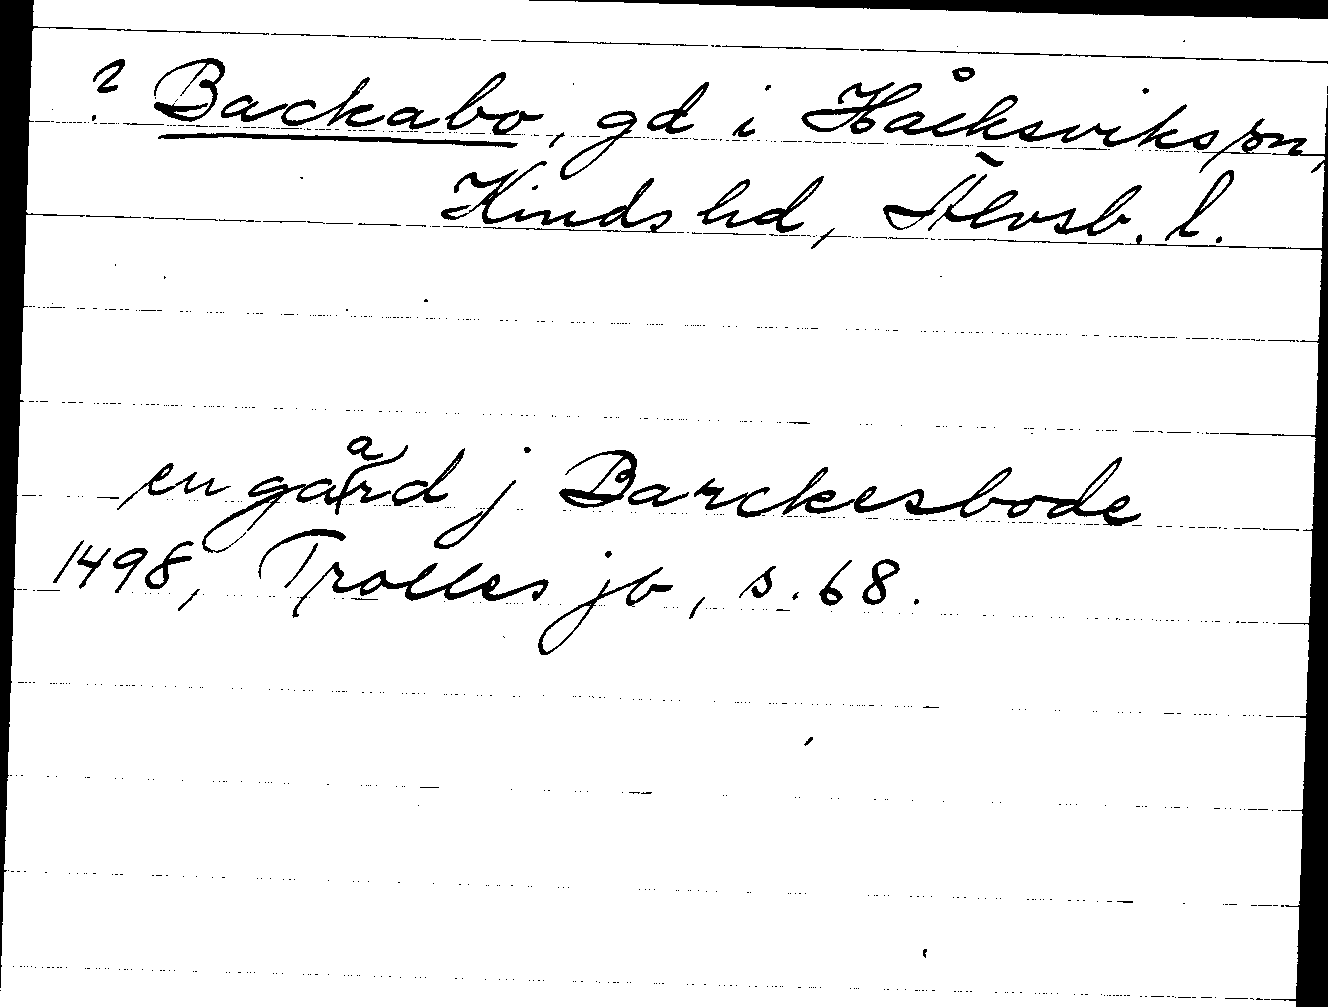 ? Backabo, gd i Håcksviks sn,
Kinds hd, Älvsb. l.
en gaard j Barckesbode
1498, Trolles jb, s. 68.